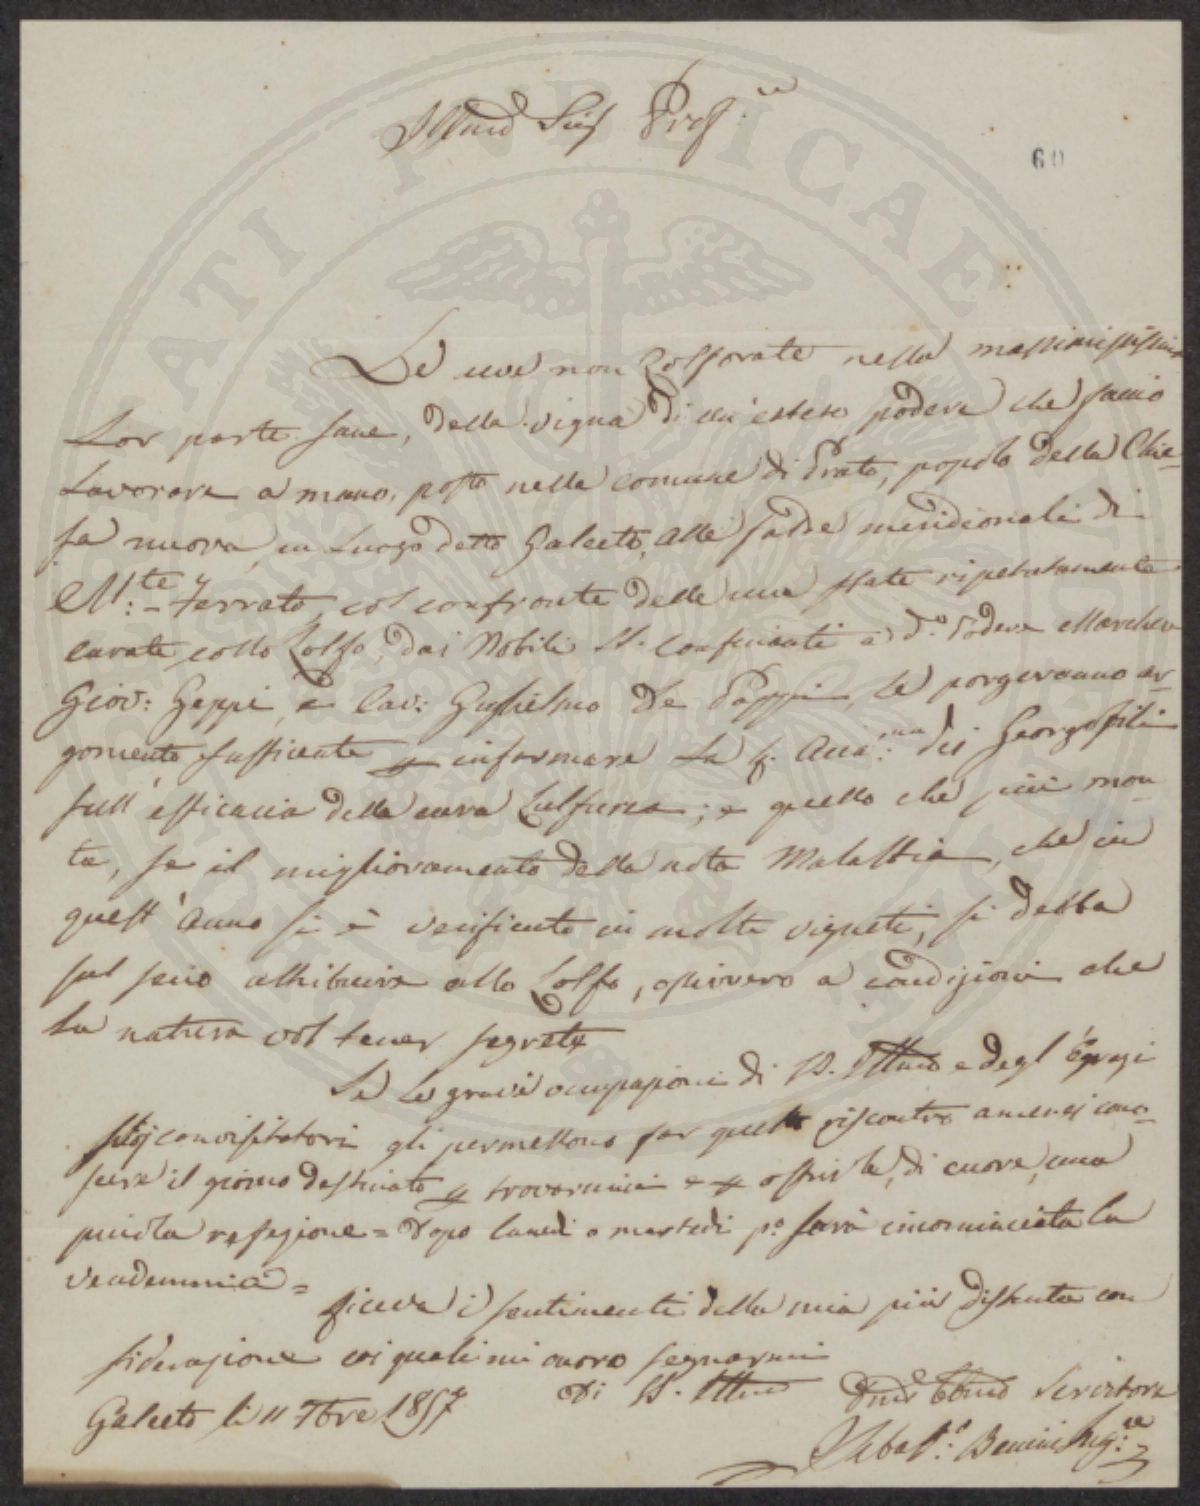 Illmo Sig Prof:re
60
Le uve non Zolforate nella massimissima
Lor parte sane, della vigna di un'esteso podere che faccio
Lavorare a mano, posto nella comune di Prato, popolo della Chie-
sa nuova, in Luogo detto Galceto, alle falde meridionali di
M:te Ferrato, col confronto delle uve state ripetutamente
curate collo Zolfo, dai Nobili SS. confinanti a d.o Podere Marchese
Giov: Geppi, e Cav: Guglielmo De Pazzi, Le porgeranno ar-
gomento sufficiente p informare La R. Acca:mia dei Georgofili
sull'efficacia della cura Zulfurea; e quello che più mon-
ta, se il miglioramento della nota Malattia, che in
quest'anno si è verificato in molti vigneti, si debba
sul serio attribuire allo Zolfo, ovvero a condizioni che
La natura vol tener segrete
Se Le gravi occupazioni di VS. Illma e degl'Egregi
suoj convisitatori gli permettono far questo riscontro amerei cono-
scere il giorno destinato p trovarmici e p offrirle, di cuore, una
piccola refezione = Dopo lunedi o martedi p.o sarà incominciata la
vendemmia =
Riceva i sentimenti della mia più distinta con
siderazione coi quali mi onoro segnarmi
Di VS. Illma
Galceto li 11 7bre 1857
Dmo Obbmo Servitore
Sebast:o Benini Ing:re